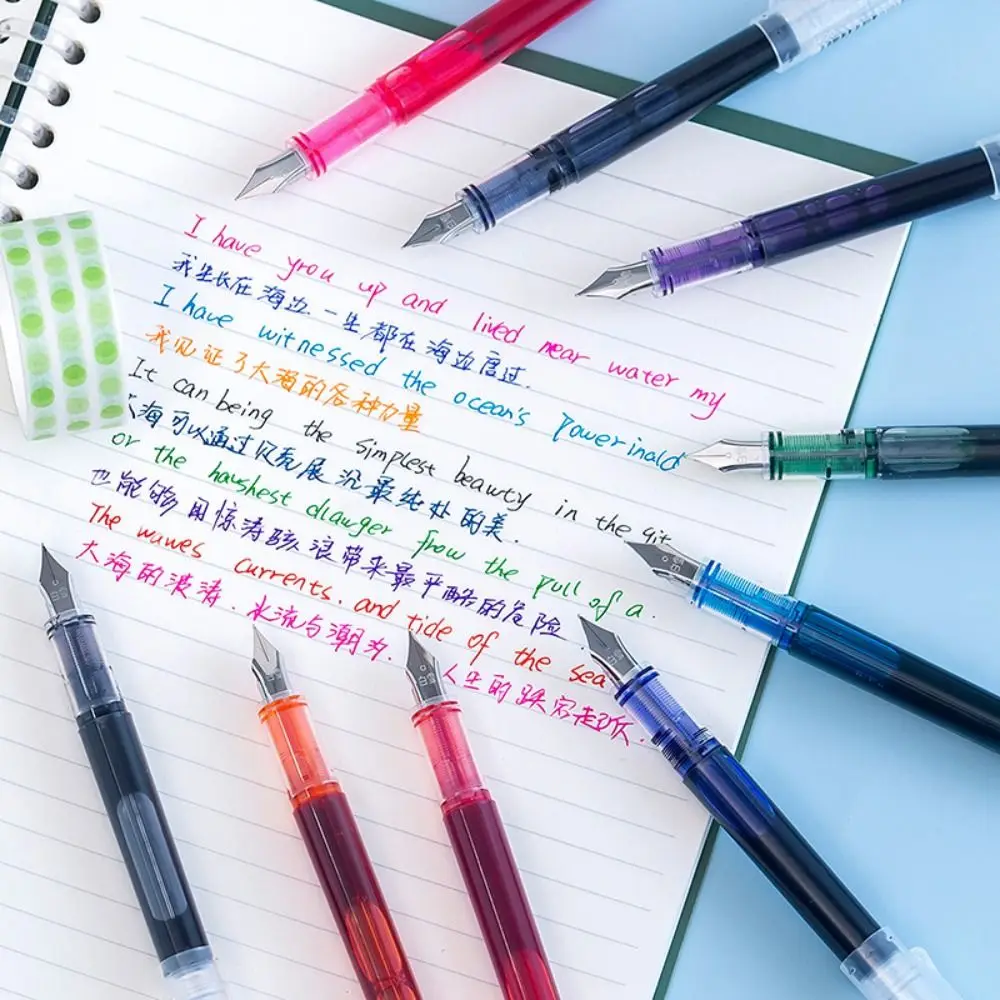 I have yrou up and lived near water my
我生长在海边.一生都在海边度过.
I have witnessed the ocean's powerinald
我见证了大海的各种力量
It can being the simplest beauty in the git
海可以通过贝壳展沉最纯处的美.
or the haushest dlawger frow the pull of a.
也能够用惊涛骇浪带来最严酷的危险.
The waves currents. and tide of the sea
大海的波涛.水流与潮汐.
人生的跌宕起伏.